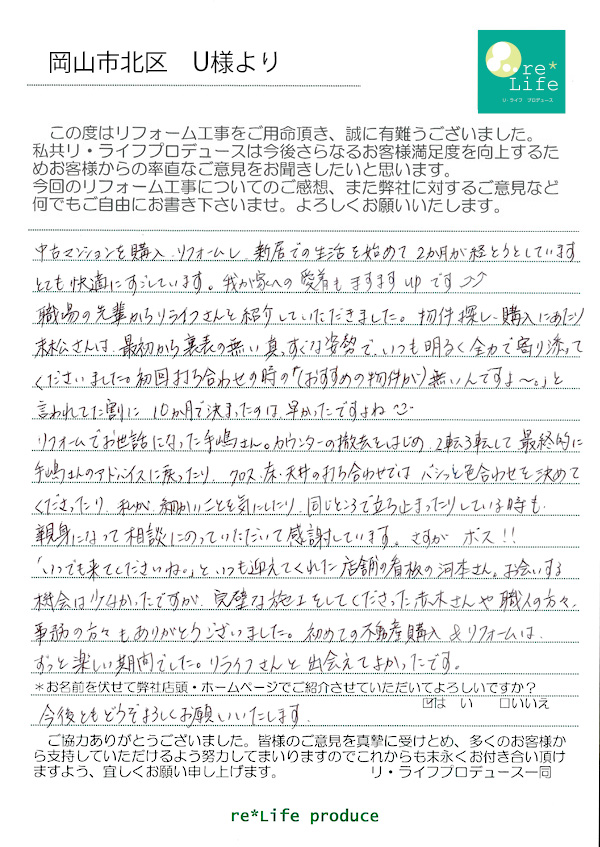 岡山市北区　U様より
re*
Life
リ・ライフ　プロデュース
この度はリフォーム工事をご用命頂き、誠に有難うございました。
私共リ・ライフプロデュースは今後さらなるお客様満足度を向上するた
めお客様からの率直なご意見をお聞きしたいと思います。
今回のリフォーム工事についてのご感想、また弊社に対するご意見など
何でもご自由にお書き下さいませ。よろしくお願いいたします。
中古マンションを購入、リフォームし、新居での生活を始めて2か月が経とうとしています
とても快適にすごしています。我が家への愛着もますますupです
職場の先輩からリライフさんと紹介していただきました。物件探し、購入にあたり
末松さんは、最初から裏表の無い真っすぐな姿勢で、いつも明るく全力で寄り添って
くださいました。初回打ち合わせの時の「(おすすめの物件が)無いんですよ〜。」と
言われてた割に10か月で決まったのは、早かったですよね
リフォームでお世話になった手嶋さん。カウンターの撤去をはじめ、2転3転して最終的に
手嶋さんのアドバイスに戻ったり、クロス、床、天井の打ち合わせでは バシっと色合わせを決めて
くださったり、私が細かいことを気にしたり、同じところで立ち止まったりしている時も、
親身になって相談にのっていただいて感謝しています。さすが ボス!!
「いつでも来てくださいね。」といつも迎えてくれた店舗の看板の河本さん。お会いする
機会は少なかったですが、完璧な施工をしてくださった赤木さんや職人の方々、
事務の方々もありがとうございました。初めての不動産購入&リフォームは、
ずっと楽しい期間でした。リライフさんと出会えてよかったです。
*お名前を伏せて弊社店頭・ホームページでご紹介させていただいてよろしいですか?
☑は　い　□いいえ
今後ともどうぞよろしくお願いいたします。
ご協力ありがとうございました。皆様のご意見を真摯に受けとめ、多くのお客様か
ら支持していただけるよう努力してまいりますのでこれからも末永くお付き合い頂け
ますよう、宜しくお願い申し上げます。　リ・ライフプロデュース一同
re*Life produce